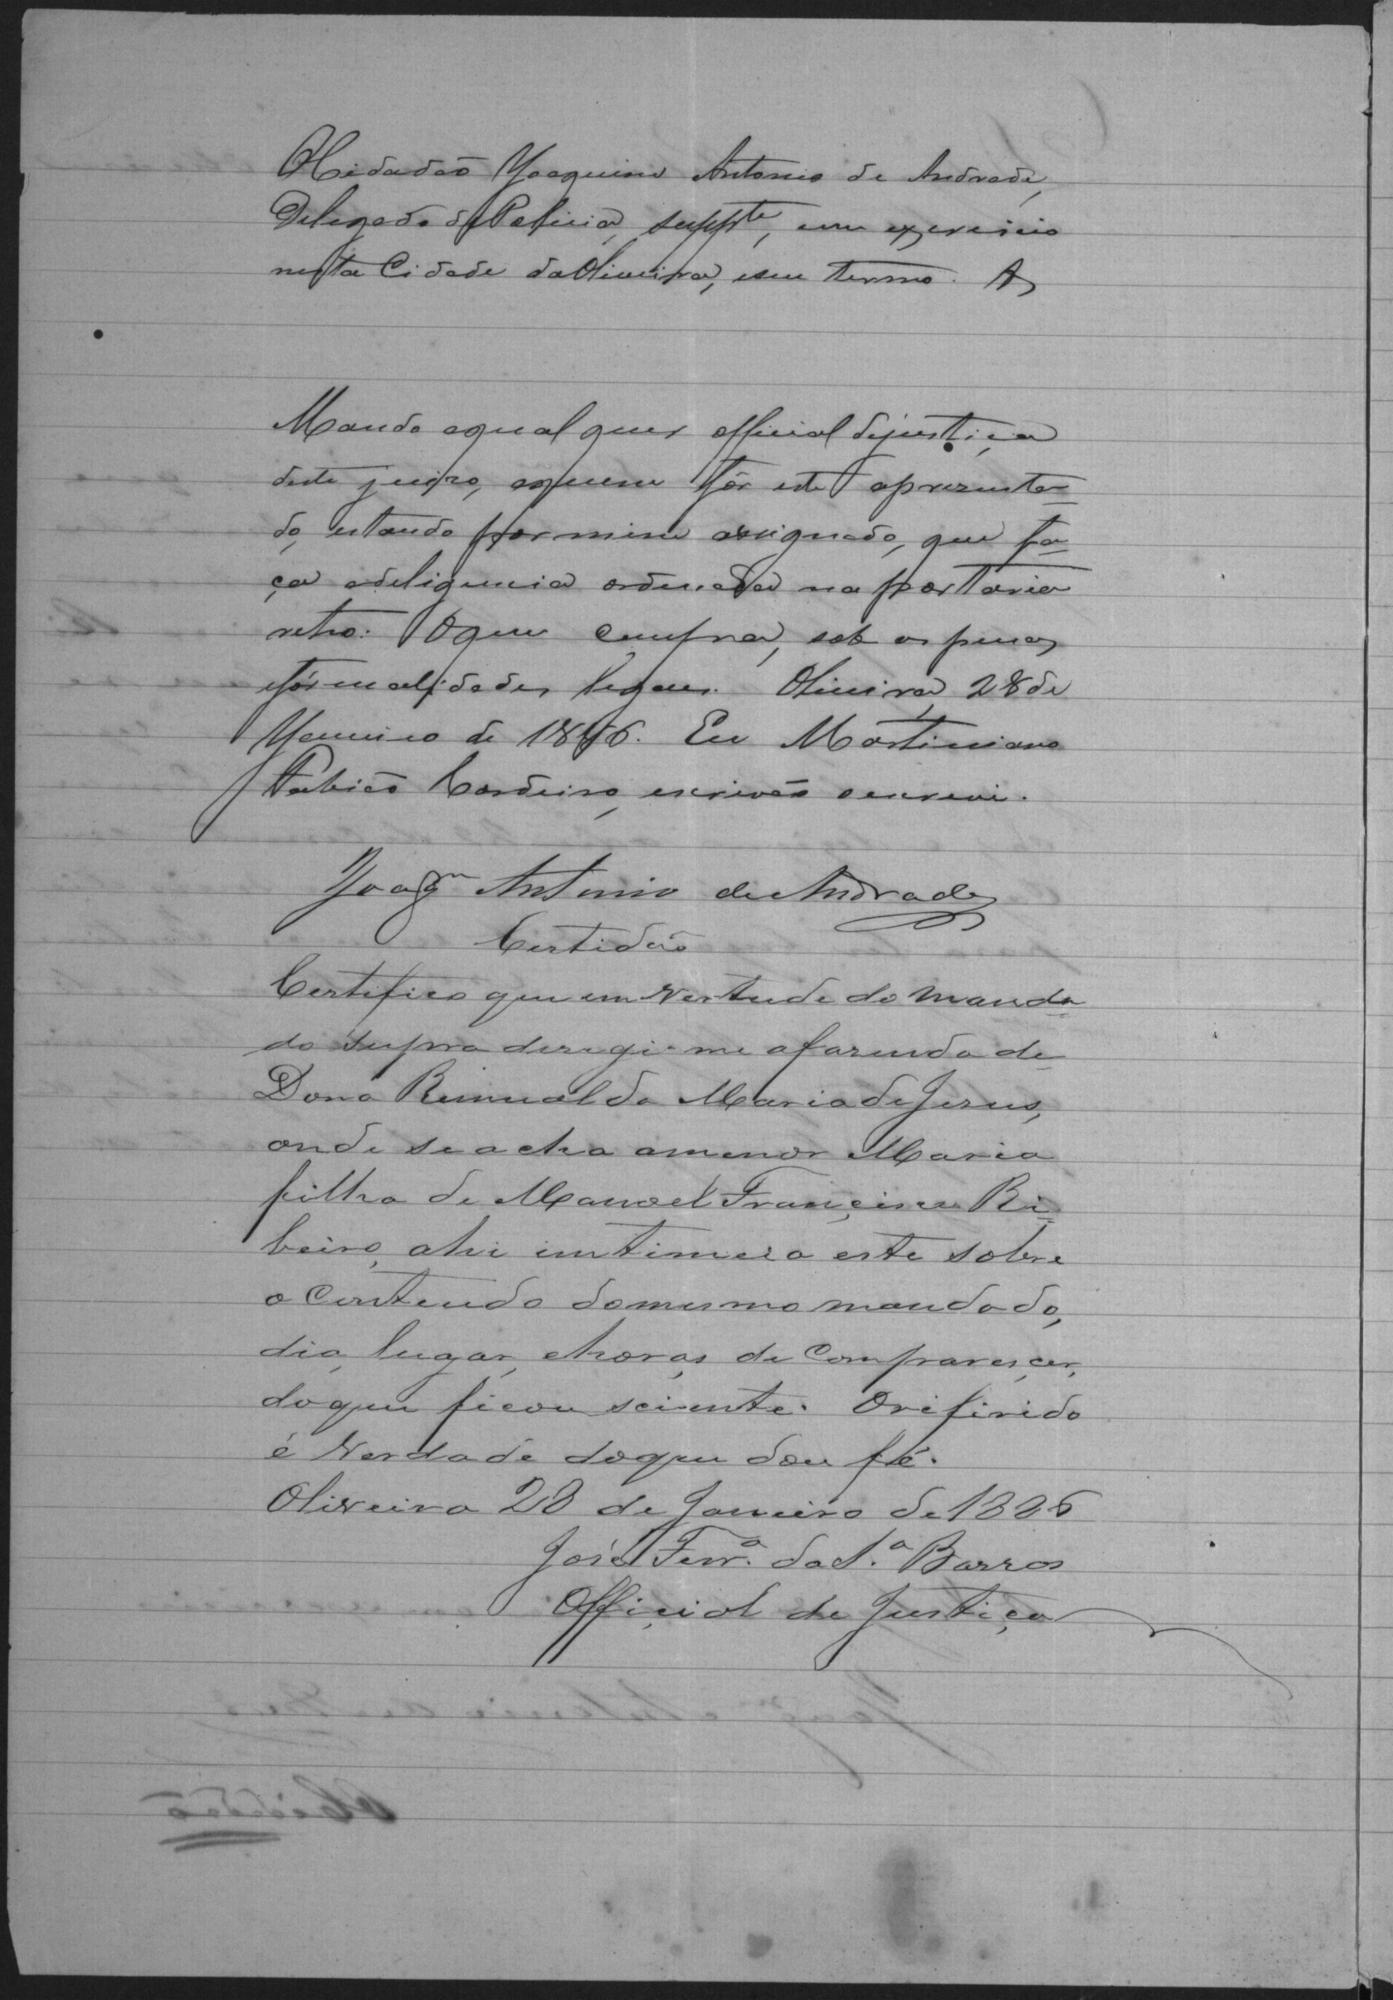 O Cidadão Joaquim Antonio de Andrade,
Delegado de Policia, suppte, em exercicio
nesta Cidade da Oliveira, e seu termo. &
Mando a qual quer official de justiça
deste juizo, a quem fôr este aprezenta=
do, estando por mim assignado, que fa=
ça a deligencia ordenada na portaria
retro. O que cumpra, sob as penas
e fórmalidades legaes. Oliveira, 28 de
Janeiro de 1886. Eu Martiniano
Cordeiro, escrivão o escrevi.
Joaqm Antonio de Andrade
Certidão
Certifico que em vertude do manda=
do supra deregi-me a fazenda de
Dona Rumualda Maria de Jesus,
onde se acha a menor Maria
filha de Manoel Francisco Ri=
beiro, ahi intimei a este sobre
o conteudo do mesmo mandado,
dia, lugar, e horas de comparesçer,
do que ficou sciente. O refirido
é verdade do que dou fé.
Oliveira 28 de Janeiro de 1886
José Ferra. da Sa. Barros
Offiçial de Justiça